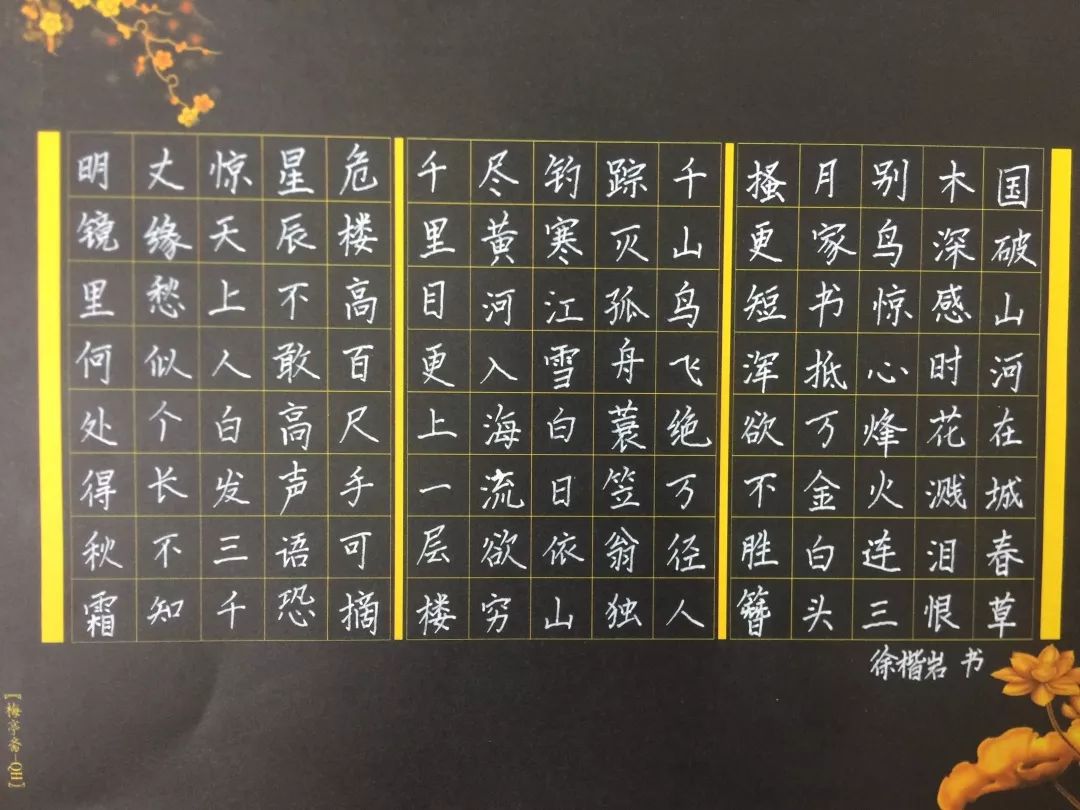 国破山河在城春草
木深感时花溅泪恨
别鸟惊心烽火连三
月家书抵万金白头
搔更短浑欲不胜簪
千山鸟飞绝万径人
踪灭孤舟蓑笠翁独
钓寒江雪白日依山
尽黄河入海流欲穷
千里目更上一层楼
危楼高百尺手可摘
星辰不敢高声语恐
惊天上人白发三千
丈缘愁似个长不知
明镜里何处得秋霜
徐楷岩 书
【梅亭斋—QH】